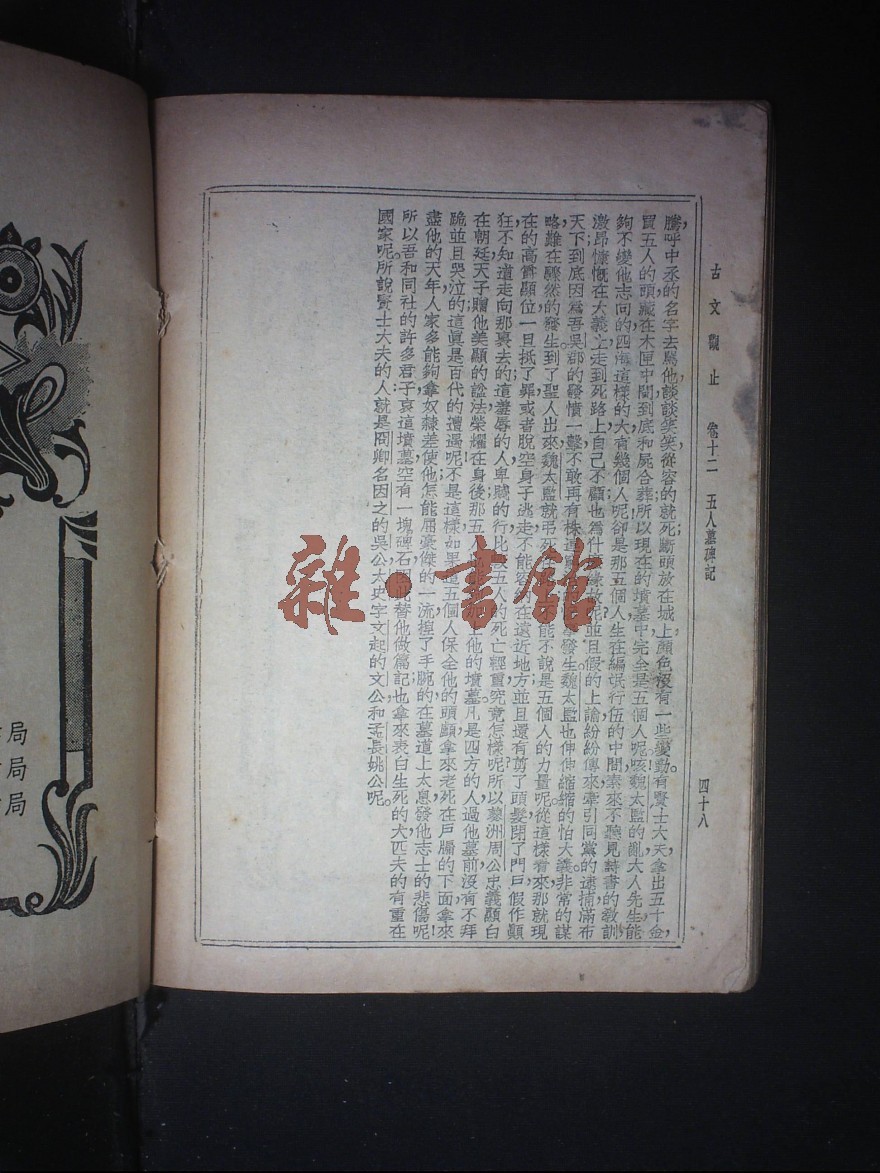 古文觀止 卷十二 五人墓碑記 四十八
騰呼中丞的名字去駡他談談笑笑從容的就死斷頭放在城上顏色沒有一些變動。有賢士大夫拿出五十金，
買五人的頭藏在木匣中間到底和屍合葬所以現在的墳墓中完全是五個人呢咳魏太監的亂大人先生能
夠不變他志向的四海這樣的大有幾個人呢卻是那五個人生在編氓行伍的中間素來不聽見詩書的敎訓，
激昂慷慨在大義上走到死路上自己不顧也爲什麽緣故呢並且假的上諭紛紛傳來牽引同黨的逮捕滿布
天下到底因爲吾吳郡的發憤一擊不敢再有株連 發生魏太監也伸伸縮縮的怕大義非常的謀
略難在驟然的發生到了聖人出來魏太監就弔死 能不說是五個人的力量呢從這樣看來那就現
在的高爵顯位一旦抵了罪或者脫空身子逃走不能 在遠近地方並且還有剪了頭髮閉了門戶假作顚
狂不知道走向那裏去的這羞辱的人卑賤的行比 五人的死亡輕重究竟怎樣呢所以蓼洲周公忠義顯白
在朝廷天子贈他美顯的諡法榮耀在身後那五人 上他的墳墓凡是四方的人過他墓前沒有不拜
跪並且哭泣的這眞是百代的遭遇呢不是這樣如果這五個人保全他的頭顱拿來老死在戶牖的下面拿來
盡他的天年人家多能夠拿奴隸差使他怎能屈豪傑的一流揑了手腕的在墓道上太息發他志士的悲傷呢！
所以吾和同社的許多君子哀這墳墓空有一塊碑石 替他做篇記也拿來表白生死的大匹夫的有重在
國家呢所說賢士大夫的人就是冏卿名因之的吳公太史字文起的文公和孟長姚公呢。
局
局
局
雜·書館